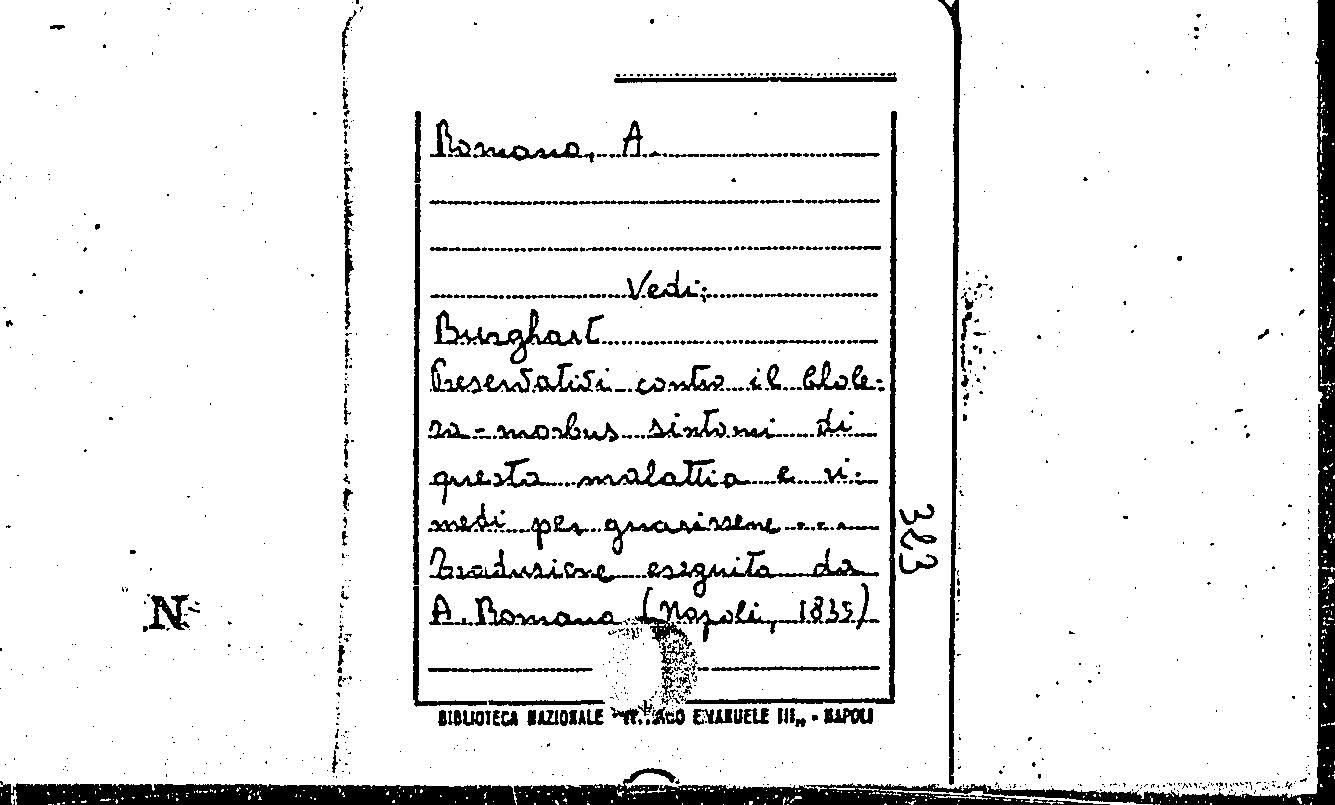 Romano, A.
Vedi:
Burghart
Preservativi contro il Chole-
ra-morbus sintomi di
questa malattia e ri-
medi per guarirsene ----
Traduzione eseguita da
A. Romano (Napoli, 1835)
383
N
BIBLIOTECA NAZIONALE EMANUELE III,, - NAPOLI